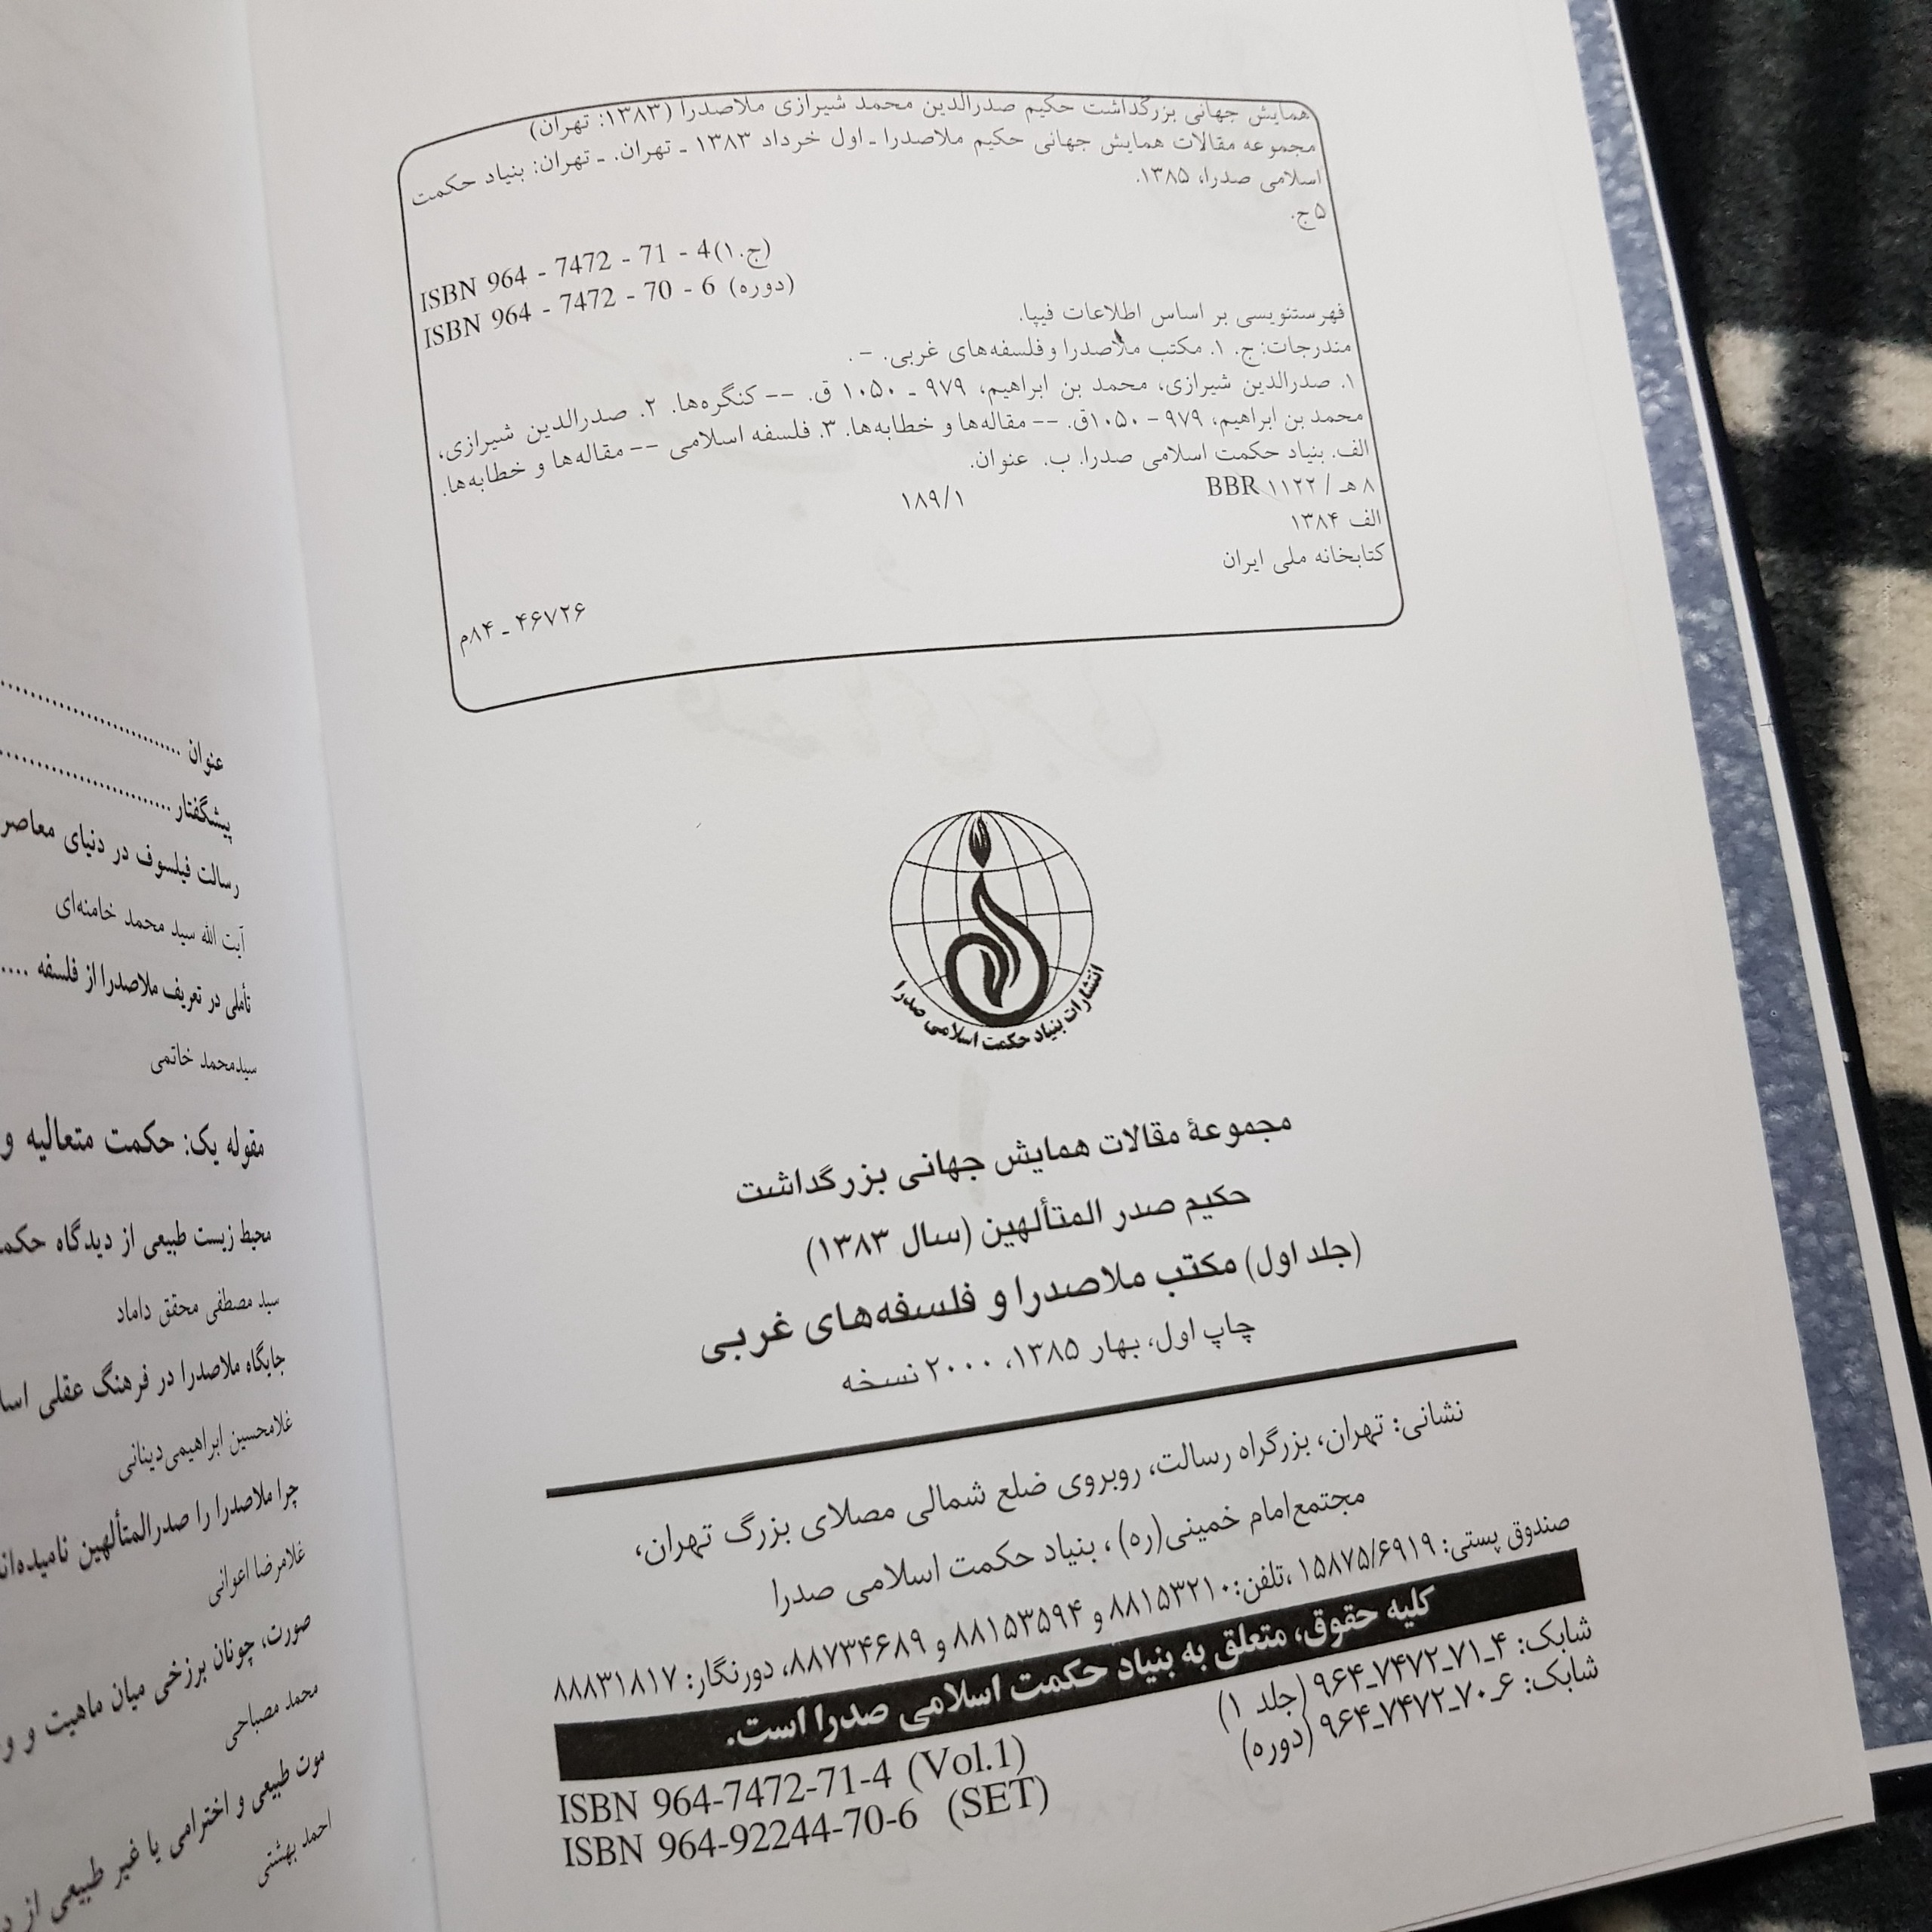 همایش جهانی بزرگداشت حکیم صدرالدین محمد شیرازی ملاصدرا (۱۳۸۳: تهران)
مجموعه مقالات همایش جهانی حکیم ملاصدرا ـ اول خرداد ۱۳۸۳ ـ تهران. ـ تهران: بنیاد حکمت
اسلامی صدرا، ۱۳۸۵.
۵ ج.
ISBN 964 - 7472 - 71 - 4 (ج.۱)
ISBN 964 - 7472 - 70 - 6 (دوره)
فهرستنویسی بر اساس اطلاعات فیپا.
مندرجات: ج. ۱. مکتب ملاصدرا و فلسفه‌های غربی. - .
۱. صدرالدین شیرازی، محمد بن ابراهیم، ۹۷۹ ـ ۱۰۵۰ ق. -- کنگره‌ها. ۲. صدرالدین شیرازی،
محمد بن ابراهیم، ۹۷۹ - ۱۰۵۰ق. -- مقاله‌ها و خطابه‌ها. ۳. فلسفه اسلامی -- مقاله‌ها و خطابه‌ها.
الف. بنیاد حکمت اسلامی صدرا. ب. عنوان.
۸ هـ / ۱۱۲۲ BBR ۱۸۹/۱
الف ۱۳۸۴
کتابخانه ملی ایران
۴۶۷۲۶ ـ ۸۴م
انتشارات بنیاد حکمت اسلامی صدرا
مجموعهٔ مقالات همایش جهانی بزرگداشت
حکیم صدر المتألهین (سال ۱۳۸۳)
(جلد اول) مکتب ملاصدرا و فلسفه‌های غربی
چاپ اول، بهار ۱۳۸۵، ۲۰۰۰ نسخه
نشانی: تهران، بزرگراه رسالت، روبروی ضلع شمالی مصلای بزرگ تهران،
مجتمع امام خمینی(ره)، بنیاد حکمت اسلامی صدرا
صندوق پستی: ۱۵۸۷۵/۶۹۱۹، تلفن: ۸۸۱۵۳۲۱۰ و ۸۸۱۵۳۵۹۴ و ۸۸۷۳۴۶۸۹، دورنگار: ۸۸۸۳۱۸۱۷
کلیه حقوق، متعلق به بنیاد حکمت اسلامی صدرا است.
شابک: ۴ـ۷۱ـ۷۴۷۲ـ۹۶۴ (جلد ۱)
شابک: ۶ـ۷۰ـ۷۴۷۲ـ۹۶۴ (دوره)
ISBN 964-7472-71-4 (Vol.1)
ISBN 964-92244-70-6 (SET)
عنوان ....................
پیشگفتار ....................
رسالت فیلسوف در دنیای معاصر
آیت الله سید محمد خامنه‌ای
تأملی در تعریف ملاصدرا از فلسفه ....
سیدمحمد خاتمی
مقوله یک: حکمت متعالیه و
محیط زیست طبیعی از دیدگاه
سید مصطفی محقق داماد
جایگاه ملاصدرا در فرهنگ عقلی
غلامحسین ابراهیمی دینانی
چرا ملاصدرا را صدرالمتألهین
غلامرضا اعوانی
صورت، چونان برزخی میان ماهیت و
محمد مصباحی
موت طبیعی و اخترامی یا غیر طبیعی از
احمد بهشتی